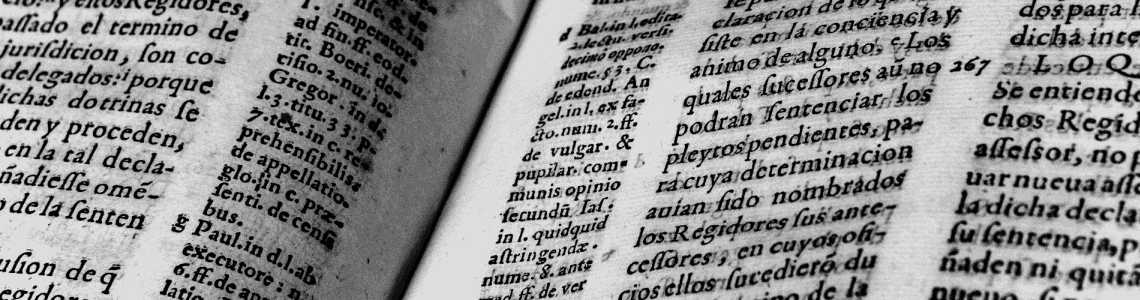 y ellos Regidores,
assado el termino de
jurisdicion, son co-
delegados: i porque
dichas dotrinas se
den y proceden,
en la tal decla-
ñadiesse omẽ-
de la senten
usion de q̃
egidores
imperator.
ad fin. ff. eod.
tit. Boeri. de-
cisio. 2. nu. 10.
Gregor. in
l. 3. titu. 33. p.
7. tex. in c. re
prehensibilis
de appellatio.
glo. in c. præ-
senti. de censi
bus.
g Paul. in d. l. ab
executore: n
6. ff. de
d Bal. in l. edita.
decimò oppono.
nume. § 3. C.
de edend. An
gel. in l. ex fa-
cto. num. 2. ff.
de vulgar. &
pupilar. com-
munis opinio
secundũ Ias.
in l. quidquid
astringendæ.
nume. 8. ante
ff. de ver
claracion de lo que
siste en la conciencia y
animo de alguno, e Los
quales sucessores aũ no 267
podran sentenciar los
pleytos pendientes, pa-
ra cuya determinacion
auian sido nombrados
los Regidores sus ante-
cessores, en cuyos ofi-
cios ellos sucedierõ du
de la
dos para
dicha inte
L O Q
Se entiend
chos Regid
assessor, no p
uar nueua asse
la dicha decla
su sentencia, p
ñaden ni quita